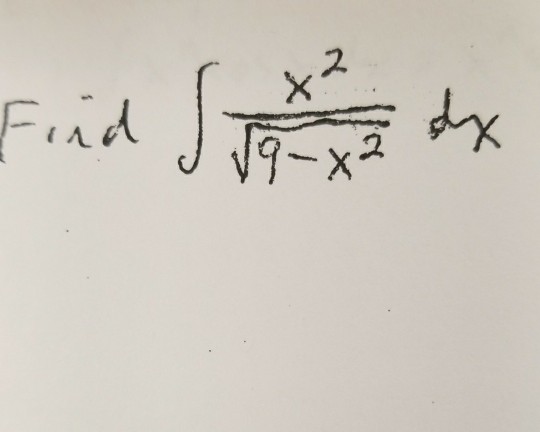 Find ∫ x²/√(9-x²) dx